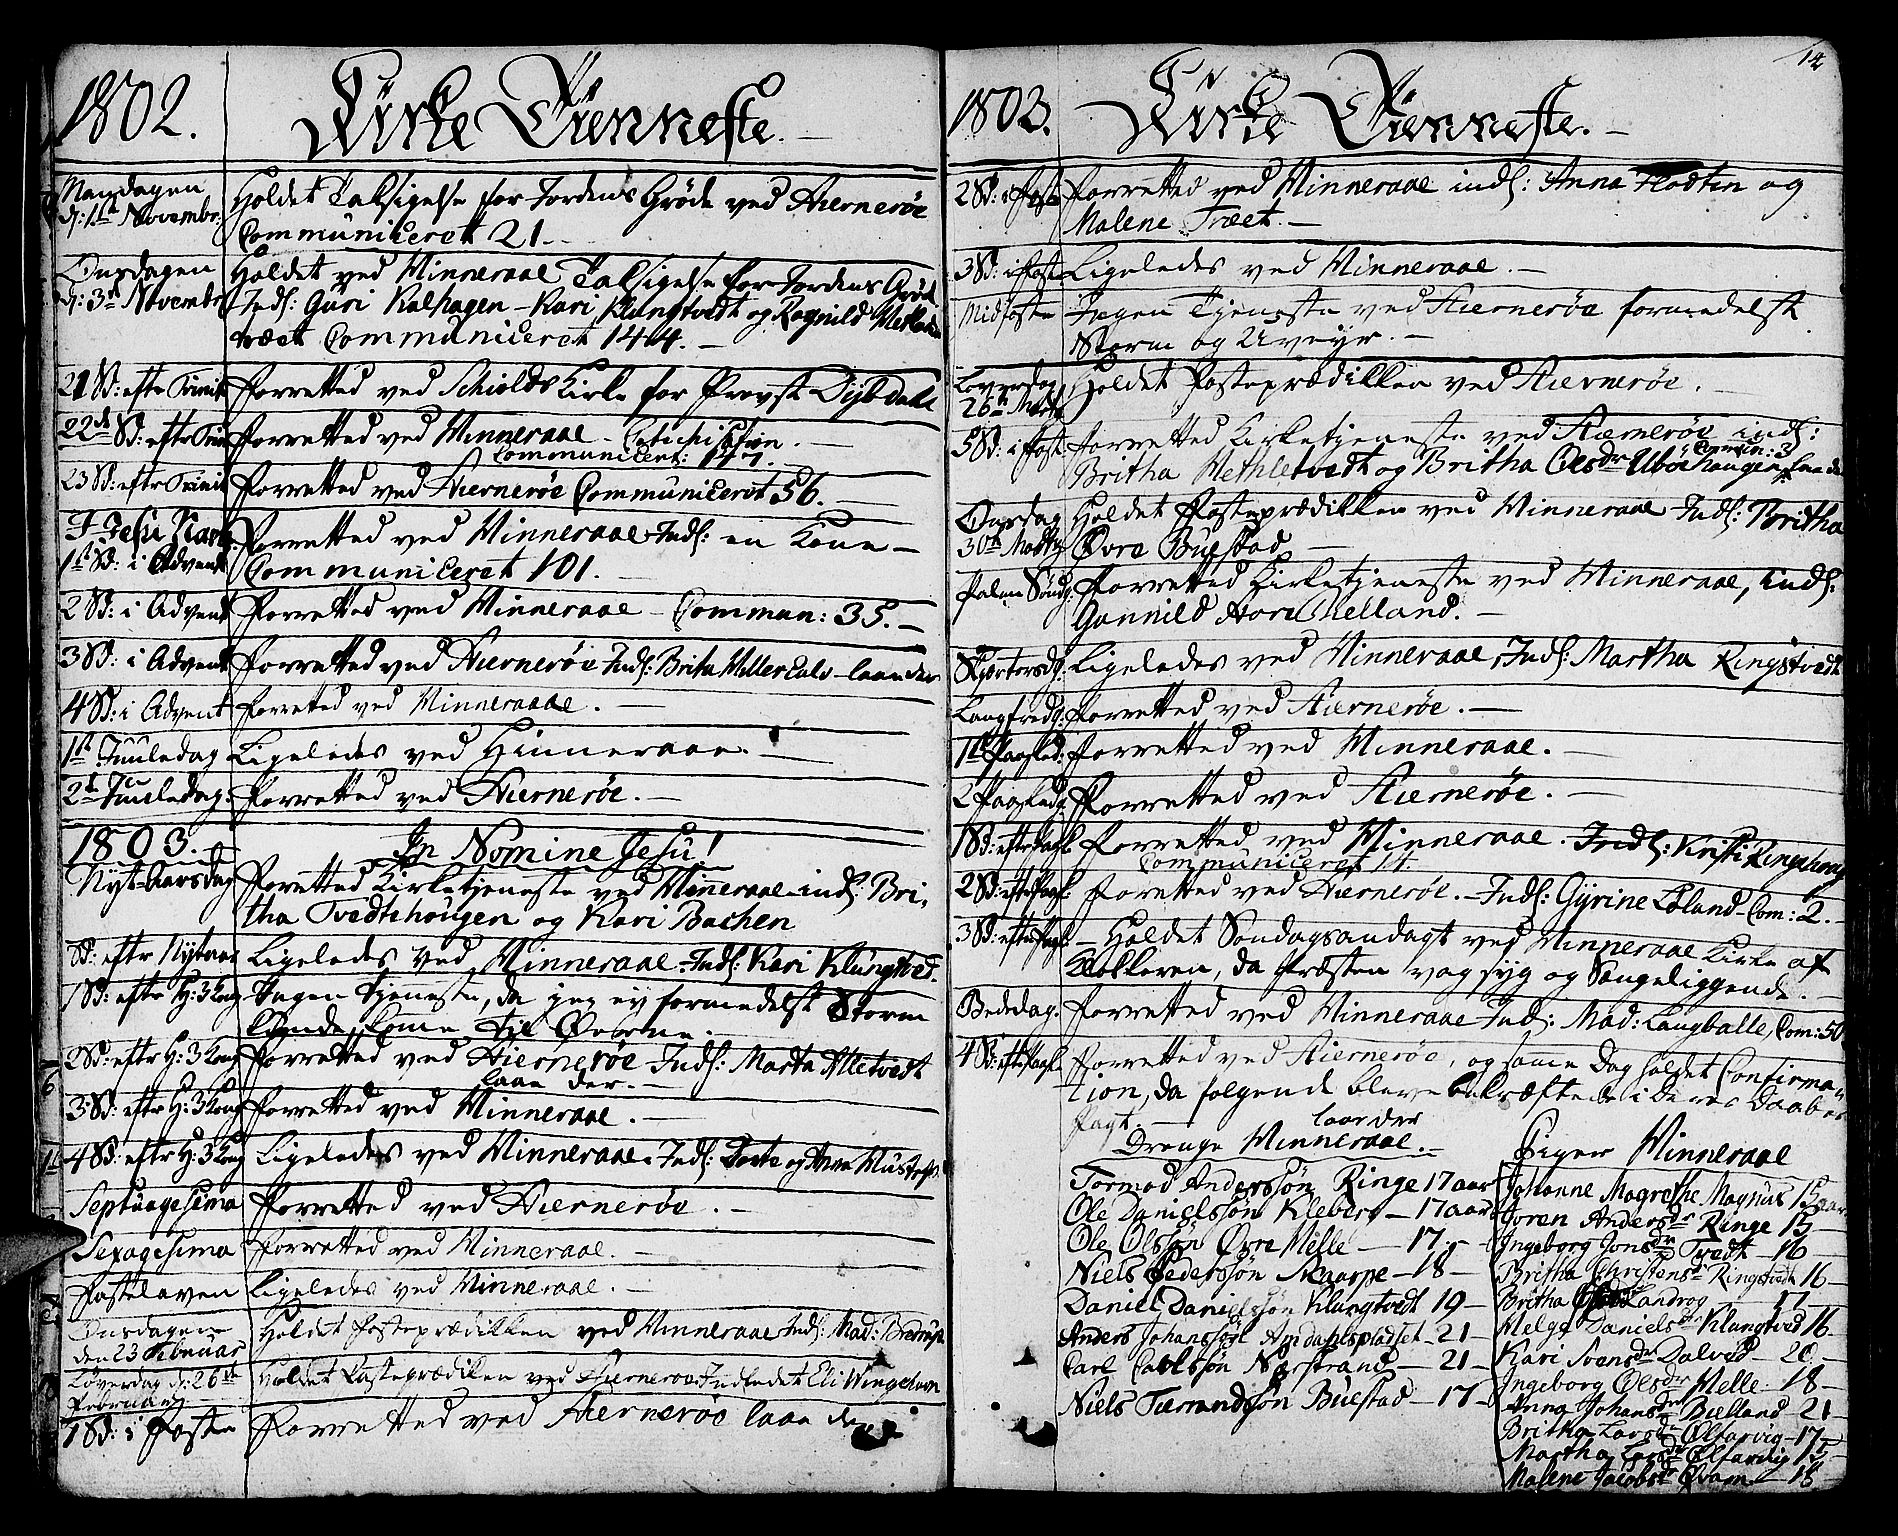 1802. Kirke Tienneste.
Mandagen Holdet Taksigelse for Jordens Grøde ved Hiernerøe
d: 1te Novembr. Communiceret 21.
Onsdagen Holdet ved Hinneraae Taksigelse for Jordens Grøde
d: 3de Novembr Indl: Guri Kalhagen - Kari Klungtvedt og Ragnild
træet Communiceret 144.
21 Sd: efter Trinit forretted ved Schiolds Kirke for Provst Dybdahl
22de Sd: eftr Trin forretted ved Hinneraae - Catechisation.
Communicert: 117.
23 Sd: eftr Trinit forretted ved Hiernerøe Communiceret 56.
I Jesu Navn forretted ved Hinneraae Indl: en Kone
1ste Sd: i Advent Communiceret 101.
2 Sd: i Advent forretted ved Hinneraae - Commun: 35.
3 Sd: i Advent forretted ved Hiernerøe Indl: Brita laae der
4 Sd: i Advent forretted ved Hinneraae.
1ste Juuledag Ligeledes ved Hinneraae.
2den Juuledag. forretted ved Hiernerøe.
1803. In Nomine Jesu!
Nyt-Aarsdag forretted Kirketjeneste ved Hinneraae indl: Bri-
tha Tvedtehougen og Kari Bachen
Sd: eftr Nytaar Ligeledes ved Hinneraae - Indl: Kari Klungtved.
1 Sd: eftr H: 3 Kong Ingen Tjeneste, da jeg ey formedelst Storm
kunde komme til Øerne.
2 Sd: eftr H: 3 Kong forretted ved Hiernerøe - Indl: Marta Alletvedt
laae der.
3 Sd: eftr H: 3 Kong forretted ved Hinneraae.
4 Sd: eftr H: 3 Kong Ligeledes ved Hinneraae. Indl: og Anna
Septuagesima forretted ved Hiernerøe.
Sexagesima forretted ved Hinneraae.
Fastelaven Ligeledes ved Hinneraae.
Onsdagen Holdet Fasteprædikken ved Hinneraae Indl: Mad:
den 23 Februar
Løverdag d: 26de Holdet Fasteprædiken ved Hierneroe Indledet Eli
Februarij
1 Sd: i Faste forretted ved Hiernerøe laae der
14
1803. Kirke Tienneste.
2 Sd: i Faste forretted ved Hinneraae indl: Anna Flotten og
Malene Træet.
3 Sd: i Faste Ligeledes ved Hinneraae.
Midfaste Ingen Tjeneste ved Hiernerøe formedelst
Storm og Uveyr.
Løverdag Holdet Fasteprædikken ved Hiernerøe.
26de Marty
5 Sd: i Fast. forretted Kirketjeneste ved Hiernerøe indl:
Commun: 3
Britha Methletvedt og Britha Olsdr
Onsdag Holdet Fasteprædikken ved Hinneraae Indl: Britha
30te Marty Øvre Buestad
Palme Søndg. forretted Kirketjeneste ved Hinneraae, indl:
Gunnild
Skjertorsdg. Ligeledes ved Hinneraae, Indl: Martha Ringstvedt
Langfredg. forretted ved Hiernerøe.
1te Paasked: forretted ved Hinneraae.
2 Paaskedg. forretted ved Hiernerøe.
1 Sd: eftr Paask. forretted ved Hinneraae. Indl: Kristi
Communiceret 14.
2 Sd: eftr Paask. forretted ved Hiernerøe. - Indl: Gyrine Løland - Com: 2.
3 Sd: eftr Paask. - Holdet Søndagsandagt ved Hinneraae Kirke af
Klokkeren, da Præsten var syg og Sengeliggende.
Bededag. forretted ved Hinneraae Indl: Mad: Langballe, Com: 50
4 Sd: eftr Paask. forretted ved Hiernerøe, og samme Dag holdet Confirma-
tion, da følgende bleve bekræftede i deres Daabes
Pagt. laae der
Drenge Hinneraae.
Tormod Anderssøn Ringe 17 aar
Ole Danielssøn Kleberg - 17 aar
Ole Olssøn Øvre Helle - 17. -
Niels Pederssøn Skarpe - 18 -
Daniel Danielssøn Klungtvedt 19 -
Anders Johanssøn Amdahlspladset - 21 -
Carl Carlssøn Nærstrand - 21 -
Niels Tarrandssøn Buestad - 17 -
Piger Hinneraae
Johanne Magrethe Magnus 15 aar
Joren Andersdr Ringe 15 -
Ingeborg Jonsdr Tvedt - 16 -
Britha Christensdr Ringstvedt 16 -
Britha Landrog 17 -
Helge Danielsdr Klungtved 16 -
Kari Svensdr Dalvid - 20 -
Ingeborg Olsdr Helle - 18 -
Anna Johansdr Bielland - 21 -
Britha Larsdr Olfarvig - 17 -
Martha Larsdr Olfarvig 15 -
Malene Jacobsdr Qvam - 18 -